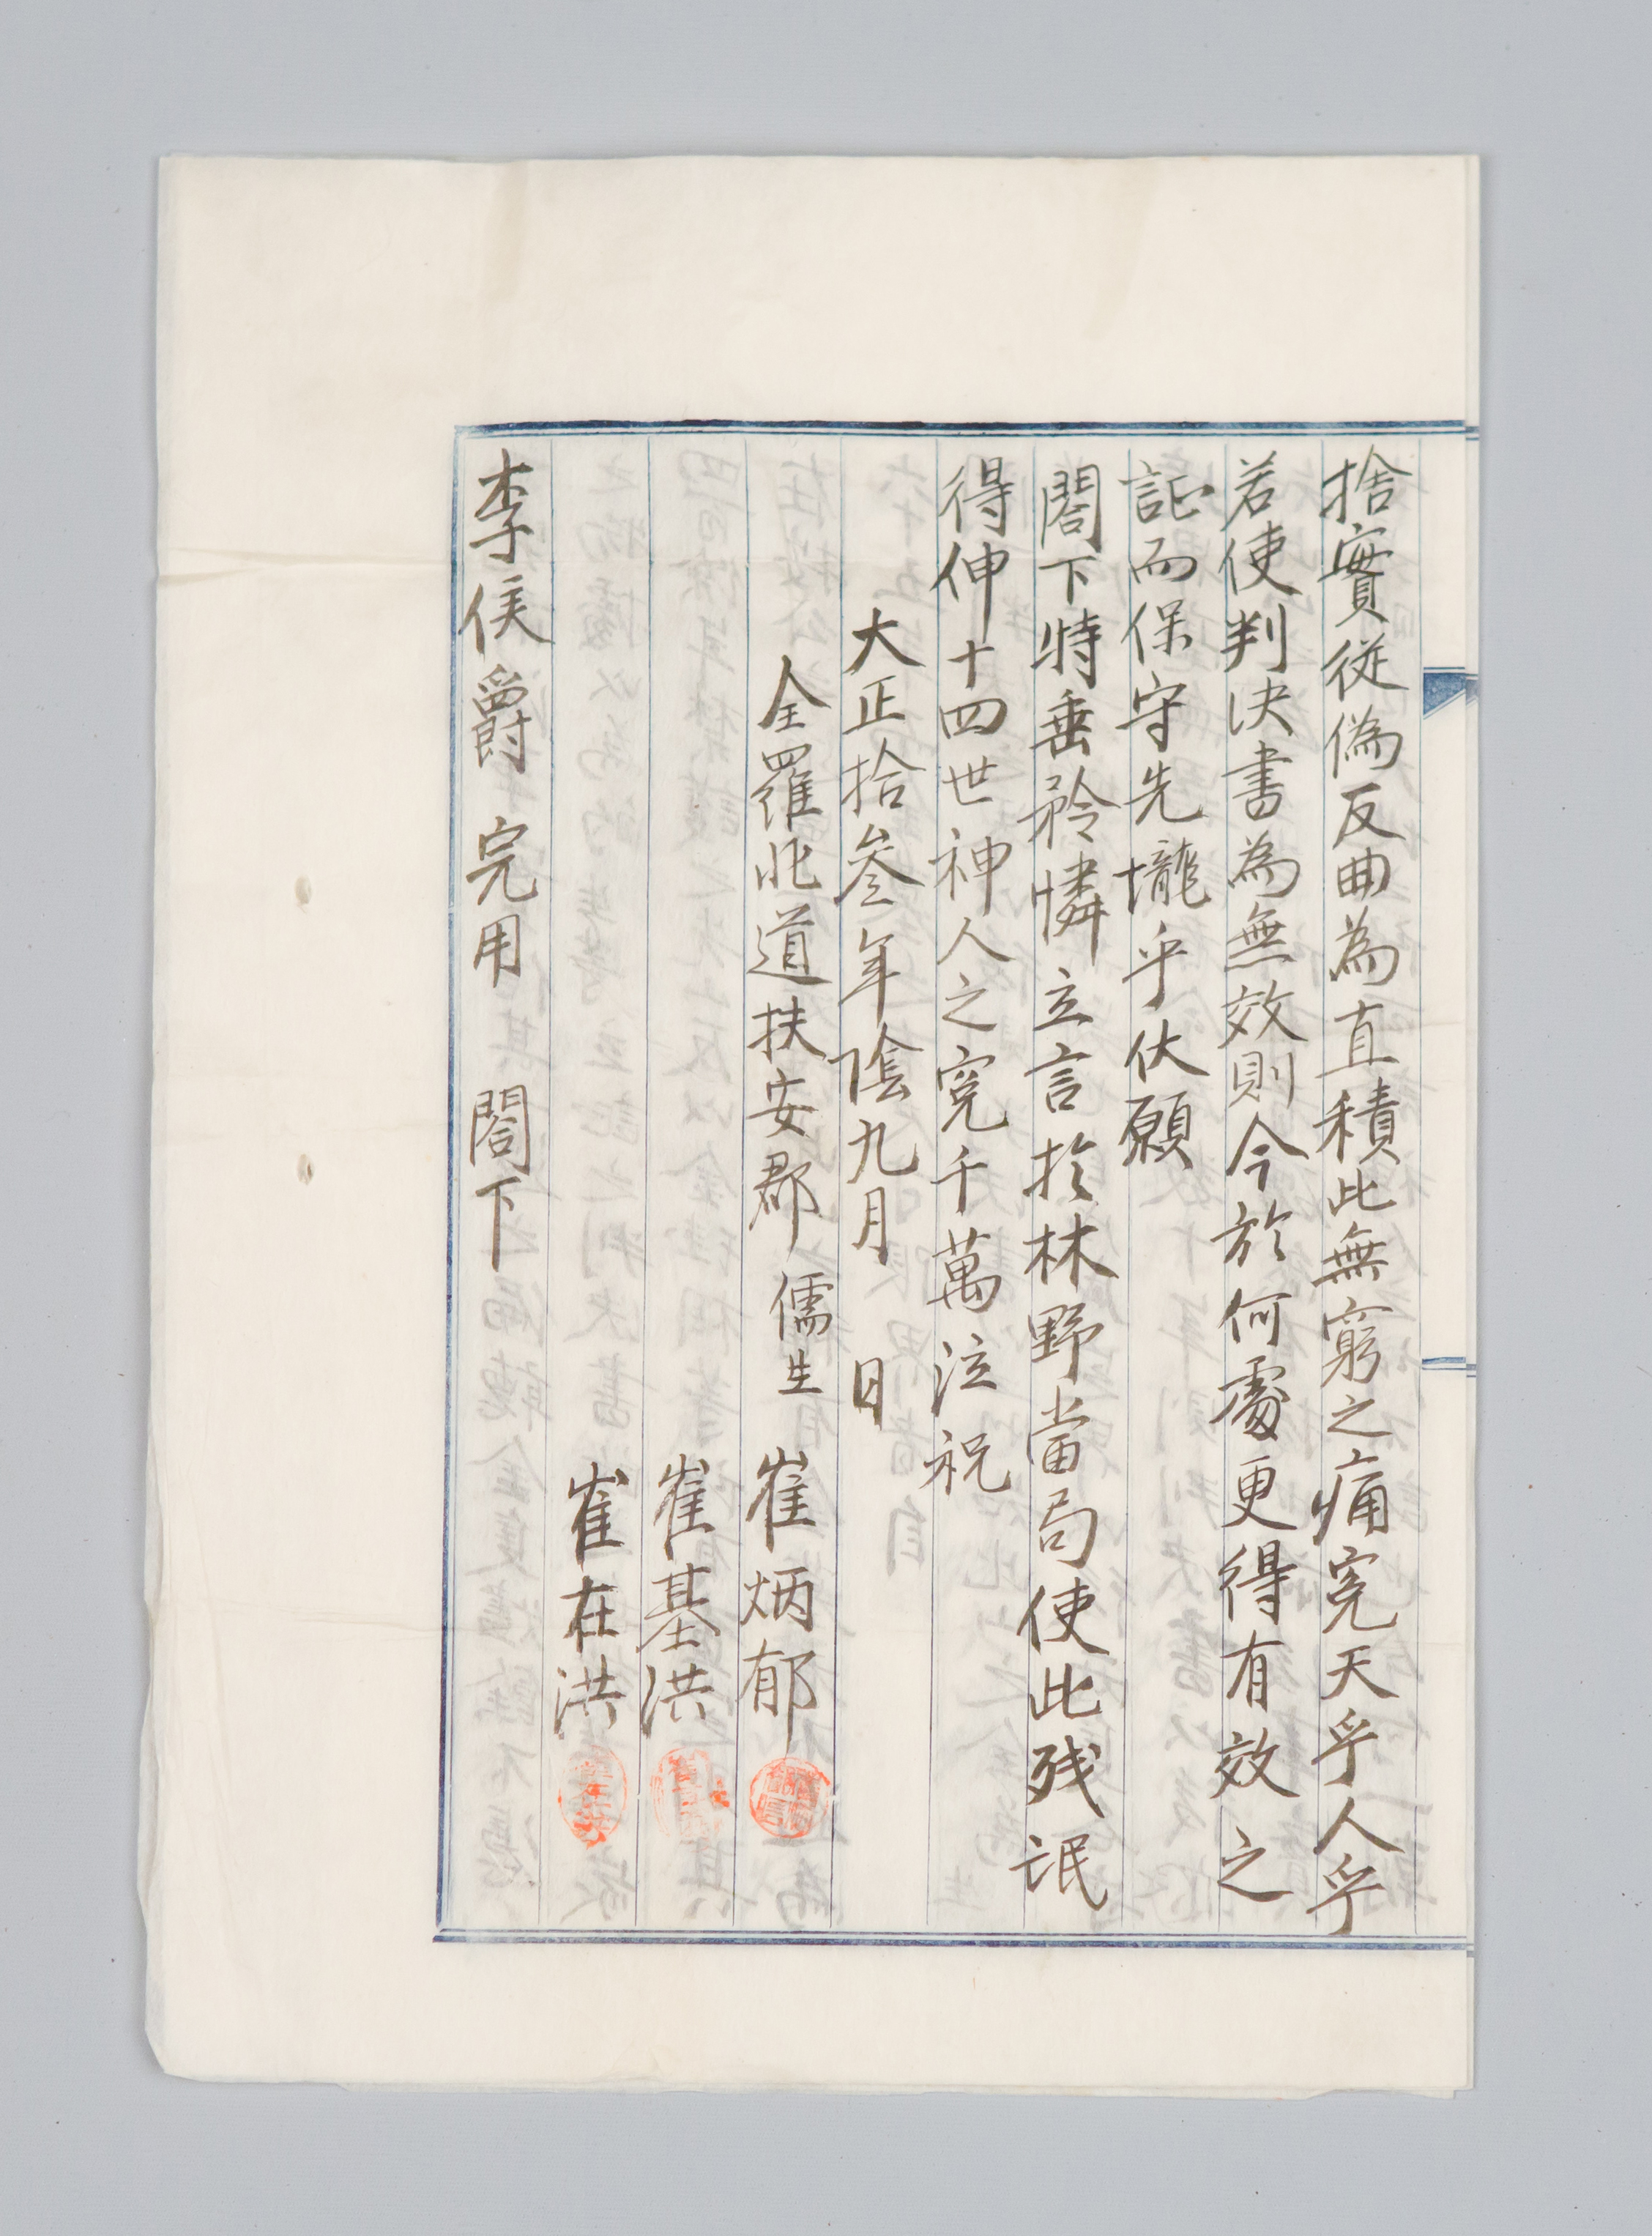 捨實從偽反曲為直積此無窮之痛寃天乎人乎
若使判決書為無效則今於何處更得有效之
証而保守先壠乎伏願
閤下特垂矜憐立言於林野當局使此残氓
得伸十四世神人之寃千萬泣祝
大正拾叁年陰九月 日
全羅北道扶安郡 儒生 崔炳郁
崔基洪
崔在洪
李侯爵 完用 閤下